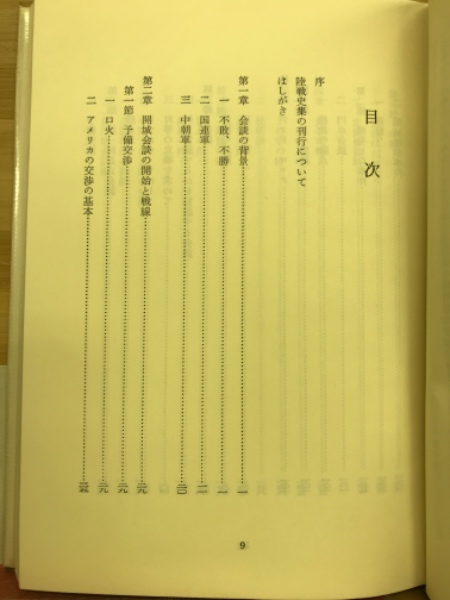 目次
序
陸戦史集の刊行について
はしがき
第一章 会談の背景……一
一 不敗、不勝……一
二 国連軍……一一
三 中朝軍……二〇
第二章 開城会談の開始と戦線……二九
第一節 予備交渉……二九
一 口火……二九
二 アメリカの交渉の基本
9